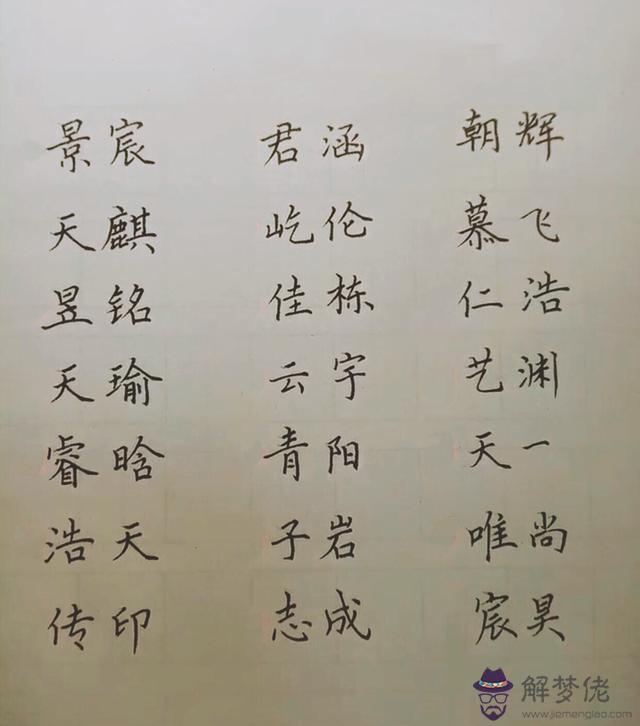 景宸 君涵 朝辉
天麒 屹伦 慕飞
昱铭 佳栋 仁浩
天瑜 云宇 艺渊
睿晗 青阳 天一
浩天 子岩 唯尚
传印 志成 宸昊
解梦佬
www.jiemenglao.com